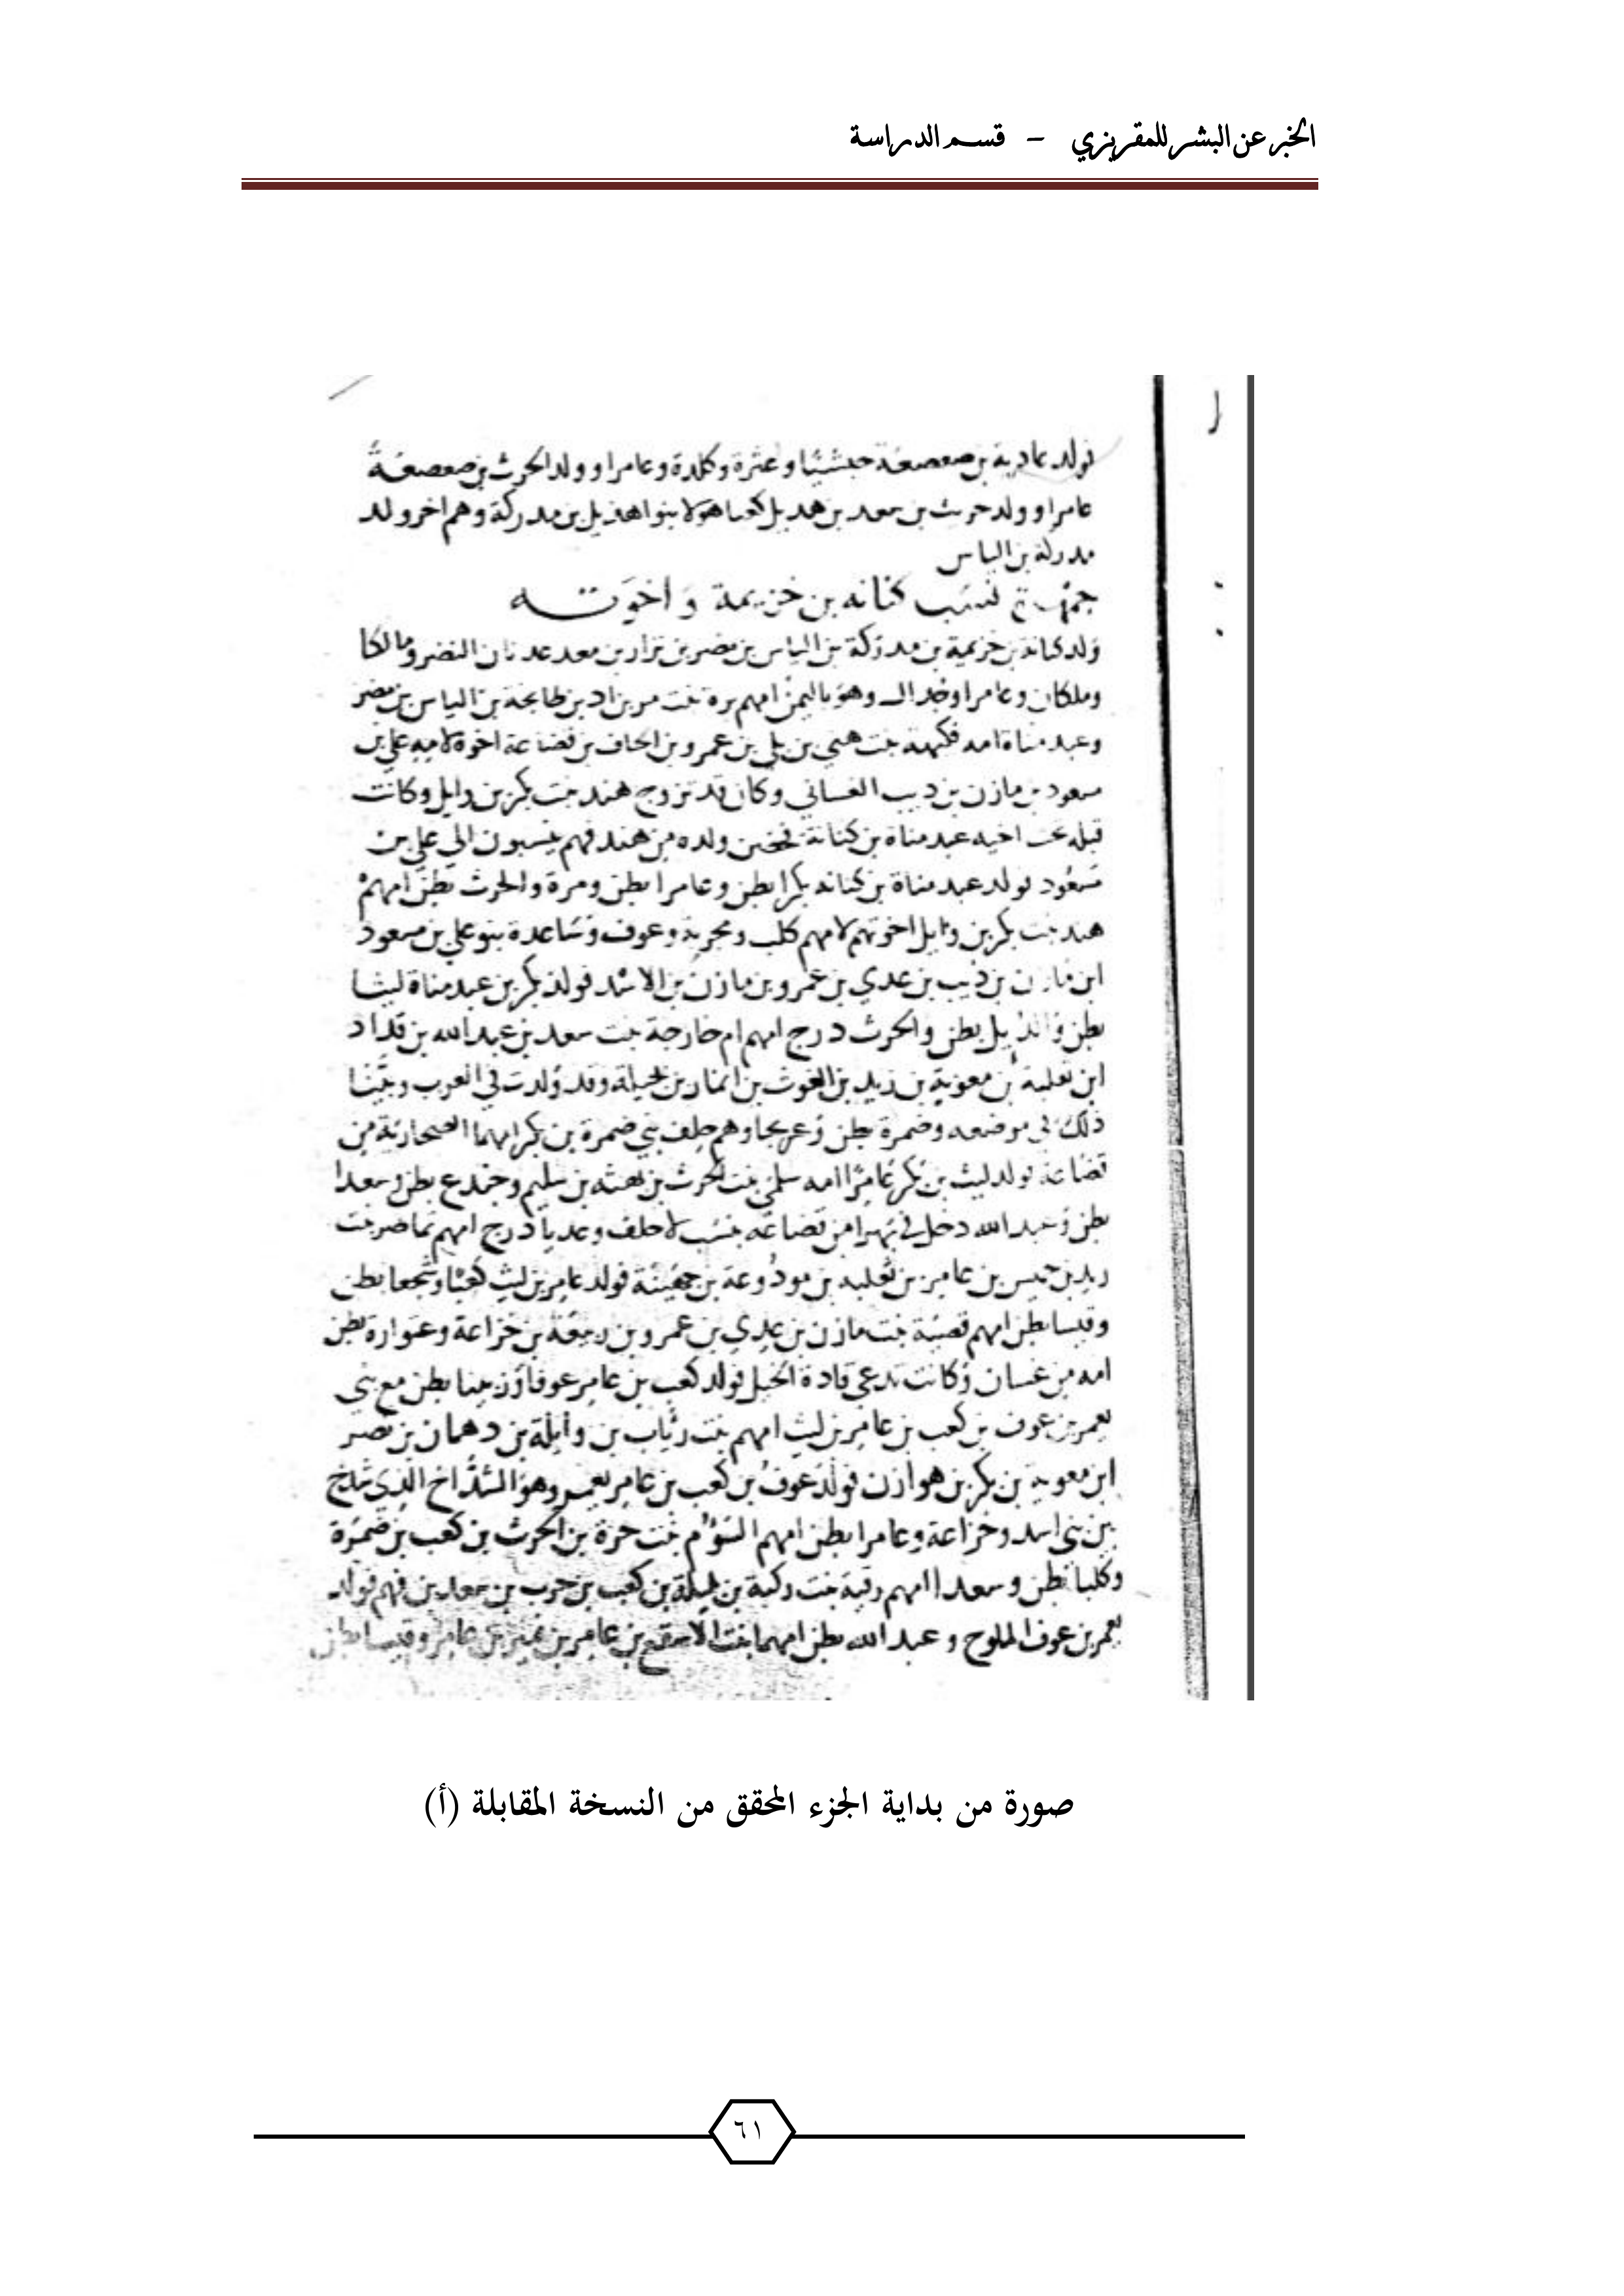 الخبر عن البشر للمقريزي – قسم الدراسة
فولد عادية بن صعصعة حبشيا وعترة وكلدة وعامرا وولد الحرث بن صعصعة
عامرا وولد حرث بن سعد بن هديل كعبا هولا بنوا هذيل بن مدركة وهم اخر ولد
مدركة بن الياس
نسب كنانه بن خزيمة و اخوته
ولد كنانة بن خزيمة بن مدركة بن الياس بن مضر بن نزار بن معد عدنان النضر ومالكا
وملكان وعامرا وهو باليمن امهم برة بنت مر بن اد بن طابخة بن الياس بن مضر
وعبد مناة امه فكيهة بنت هني بن بلي بن عمرو بن الحاف بن قضاعة اخوه لامه علي بن
مسعود بن مازن بن ديب الغساني وكان قد تزوج هند بنت بكر بن وايل وكانت
قبله تحت اخيه عبد مناة بن كنانة فحضن ولده من هند فهم ينسبون الي علي بن
مسعود فولد عبد مناة بن كنانه بكرا بطن وعامرا بطن ومرة والحرث بطن امهم
هند بنت بكر بن وايل اخوتهم لامهم كلب ومجربة وعوف وساعدة بنو علي بن مسعود
ابن مازن بن ذيب بن عدي بن عمرو بن مازن بن الاسد فولد بكر بن عبد مناة ليثا
بطن والديل بطن والحرث درج امهم ام خارجة بنت سعد بن عبد الله بن قداد
ابن ثعلبة بن معوية بن زيد بن الغوث بن انمار بن بجيلة وقد ولدت في العرب وبينا
ذلك في موضعه وضمرة بطن وعريجا وهم حلف بني ضمرة بن بكر امهما الصحارية من
قضاعة فولد ليث بن بكر عامرا امه سلمي بنت الحرث بن بهثه بن سليم وجندع بطن وسعدا
بطن وعبد الله دخل في بهرا من قضاعه بنسب لا حلف وعديا درج امهم تماضر بنت
زيد بن حميس بن عامر بن ثعلبه بن مودوعة بن جهينة فولد عامر بن ليث كعبا وشجعا بطن
وقيسا بطن امهم بنت مازن بن عدي بن عمرو بن ربيعة بن خزاعة وعتوارة بطن
امه من غسان وكانت تدعي قادة الخيل فولد كعب بن عامر عوفا بطن مع بني
يعمر بن عوف بن كعب بن عامر بن ليث امهم بنت رئاب بن وايلة بن دهمان بن نصر
ابن معوية بن بكر بن هوازن فولد عوف بن كعب بن عامر يعمر وهو الشداخ الذي شدخ
بين بني اسد وخزاعة وعامرا بطن امهم السؤم بنت حرة بن الحرث بن كعب بن ضمرة
وكلبا بطن وسعدا امهم رقية بنت ركبة بن بن كعب بن حرب بن سعد بن فهم فولد
يعمر بن عوف الملوح و عبد الله بطن امهما بنت الاسقع بن عامر بن عامر وقيسا بطن
صورة من بداية الجزء المحقق من النسخة المقابلة (أ)
٦١